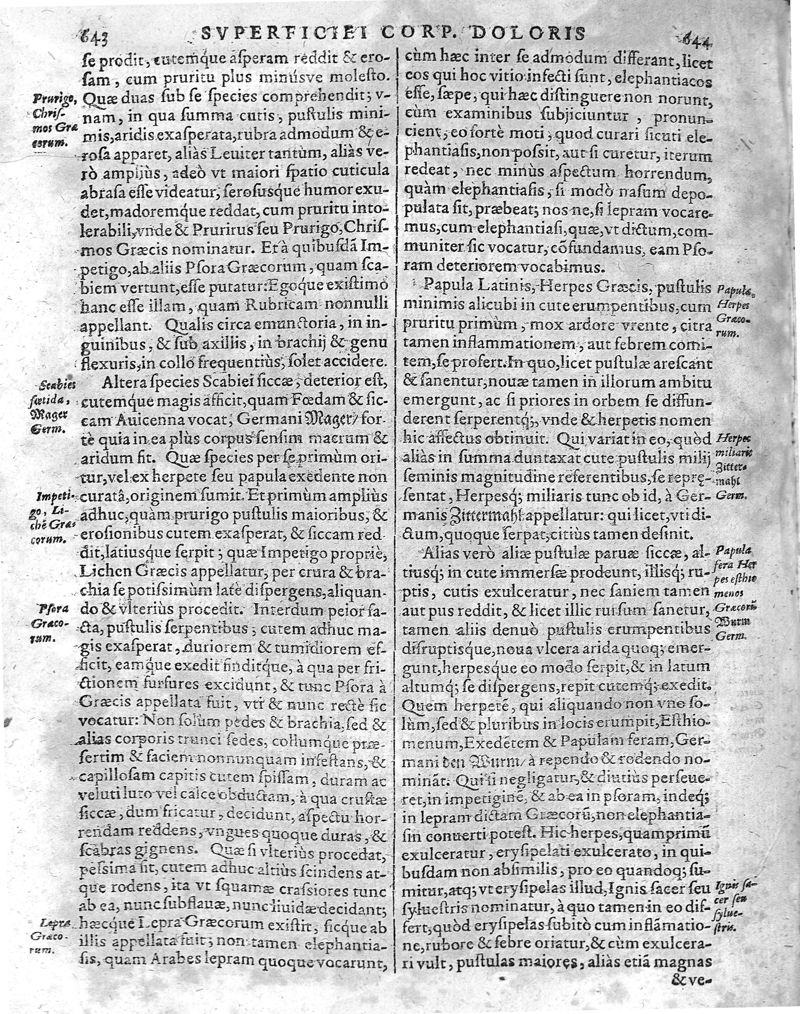 643 SVPERFICIEI CORP. DOLORIS 644
se prodit, cutemque asperam reddit & ero-
sam, cum pruritu plus minúsve molesto.
Prurigo,
Chris-
mos Græ
corum.
Quæ duas sub se species comprehendit; v-
nam, in qua summa cutis, pustulis mini-
mis, aridis exasperata, rubra admodum & e-
rosa apparet, aliàs Leuiter tantùm, aliàs ve-
rò ampliùs, adeò vt maiori spatio cuticula
abrasa esse videatur, serosusque humor exu-
det, madoremque reddat, cum pruritu into-
lerabili, vnde & Pruritus seu Prurigo, Chris-
mos Græcis nominatur. Et à quibusdã Im-
petigo, ab aliis Psora Græcorum, quam sca-
biem vertunt, esse putatur: Egoque existimo
hanc esse illam, quam Rubricam nonnulli
appellant. Qualis circa emunctoria, in in-
guinibus, & sub axillis, in brachij & genu
flexuris, in collo frequentiùs, solet accidere.
Scabies
fœtida,
Mager
Germ.
Altera species Scabiei siccæ, deterior est,
cutemque magis afficit, quam Fœdam & sic-
cam Auicenna vocat, Germani Mager/ for-
tè quia in ea plùs corpus sensim macrum &
aridum fit. Quæ species per se primùm ori-
tur, vel ex herpete seu papula exedente non
Impeti-
go, Li-
chẽ Græ
corum.
curatâ, originem sumit. Et primùm ampliùs
adhuc, quàm prurigo pustulis maioribus, &
erosionibus cutem exasperat, & siccam red-
dit, latiusque serpit; quæ Impetigo propriè,
Lichen Græcis appellatur, per crura & bra-
chia se potissimùm latè dispergens, aliquan-
Psora
Græco-
rum.
do & vlterius procedit. Interdum peior fa-
cta, pustulis serpentibus; cutem adhuc ma-
gis exasperat, duriorem & tumidiorem ef-
ficit, eamque exedit finditque, à qua per fri-
ctionem furfures excidunt, & tunc Psora à
Græcis appellata fuit, vti & nunc rectè sic
vocatur: Non solùm pedes & brachia, sed &
alias corporis trunci sedes, collumque præ-
sertim & faciem nonnunquam infestans, &
capillosam capitis cutem spissam, duram ac
veluti luto vel calce obductam, à qua crustæ
siccæ, dum fricatur, decidunt, aspectu hor-
rendam reddens, vngues quoque duras, &
scabras gignens. Quæ si vlteriùs procedat,
pessima fit, cutem adhuc altiùs scindens at-
que rodens, ita vt squamæ crassiores tunc
ab ea, nunc subflauæ, nunc liuidæ decidant;
Lepra
Græco-
rum.
hæcque Lepra Græcorum existit, sicque ab
illis appellata fuit; non tamen elephantia-
sis, quam Arabes lepram quoque vocarunt,
cùm hæc inter se admodum differant, licet
eos qui hoc vitio infecti sunt, elephantiacos
esse, sæpe, qui hæc distinguere non norunt,
cùm examinibus subjiciuntur, pronun-
cient, eo fortè moti, quod curari sicuti ele-
phantiasis, non possit, aut si curetur, iterum
redeat, nec minùs aspectum horrendum,
quàm elephantiasis, si modò nasum depo-
pulata sit, præbeat; nos ne, si lepram vocare-
mus, cum elephantiasi, quæ, vt dictum, com-
muniter sic vocatur, cõfundamus, eam Pso-
ram deteriorem vocabimus.
Papula,
Herpes
Græco-
rum.
Papula Latinis, Herpes Græcis, pustulis
minimis alicubi in cute erumpentibus, cum
pruritu primùm, mox ardore vrente, citra
tamen inflammationem, aut febrem comi-
tem, se profert. In quo, licet pustulæ arescant
& sanentur, nouæ tamen in illorum ambitu
emergunt, ac si priores in orbem se diffun-
derent serperentq;, vnde & herpetis nomen
Herpes
miliaris
Zitter-
mahl
Germ.
hic affectus obtinuit. Qui variat in eo, quòd
aliàs in summa duntaxat cute pustulis milij
seminis magnitudine referentibus, se repræ-
sentat, Herpesq; miliaris tunc ob id, à Ger-
manis Zittermahl appellatur: qui licet, vti di-
ctum, quoque serpat, citiùs tamen desinit.
Papula
fera Her
pes esthio
menos
Græcorũ
Wurm
Germ.
Alias verò aliæ pustulæ paruæ siccæ, al-
tiusq; in cute immersæ prodeunt, illisq; ru-
ptis, cutis exulceratur, nec saniem tamen
aut pus reddit, & licet illic rursum sanetur,
tamen aliis denuò pustulis erumpentibus
disruptisque, noua vlcera arida quoq; emer-
gunt, herpesque eo modo serpit, & in latum
altumq; se dispergens, repit cutemq; exedit.
Quem herpetẽ, qui aliquando non vno so-
lùm, sed & pluribus in locis erumpit, Esthio-
menum, Exedẽtem & Papulam feram, Ger-
mani den Wurm/ à rependo & rodendo no-
minãt. Qui si negligatur, & diutiùs perseue-
ret, in impetiginẽ, & ab ea in psoram, indeq;
in lepram dictam Græcorũ, non elephantia-
sin conuerti potest. Hic herpes, quamprimũ
exulceratur, erysipelati exulcerato, in qui-
busdam non absimilis, pro eo quandoq; su-
Ignis sa-
cer seu
sylue-
stris.
mitur, atq; vt erysipelas illud, Ignis sacer seu
syluestris nominatur, à quo tamen in eo dif-
fert, quòd erysipelas subitò cum inflãmatio-
ne, rubore & febre oriatur, & cùm exulcera-
ri vult, pustulas maiores, aliàs etiã magnas
& ve-